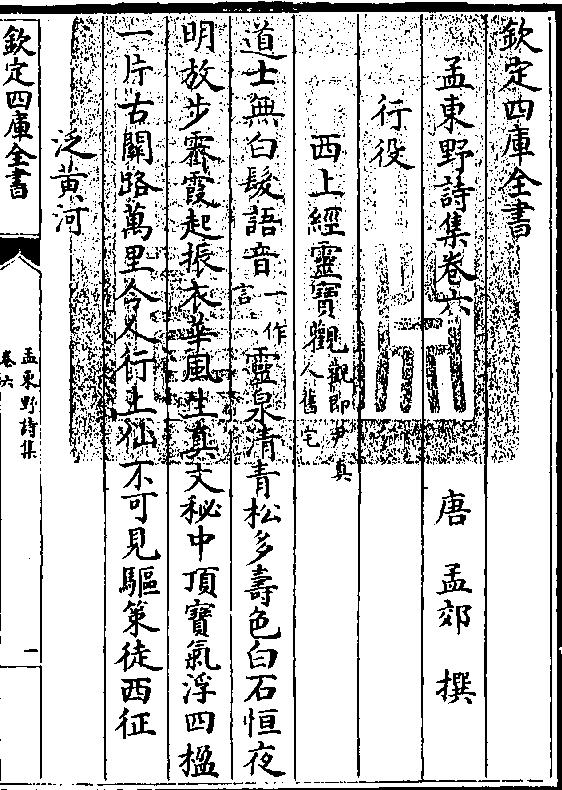 欽定四庫全書
孟東野詩集卷六　唐　孟郊　撰
行役
西上經靈寶觀觀即尹真人舊宅
道士無白髮語音一作言靈泉清青松多壽色白石恒夜
明放步霽霞起振衣華風生真文秘中頂寶氣浮四楹
一片古關路萬里今人行上仙不可見驅策徒西征
泛黃河
欽定四庫全書
孟東野詩集
卷六
一